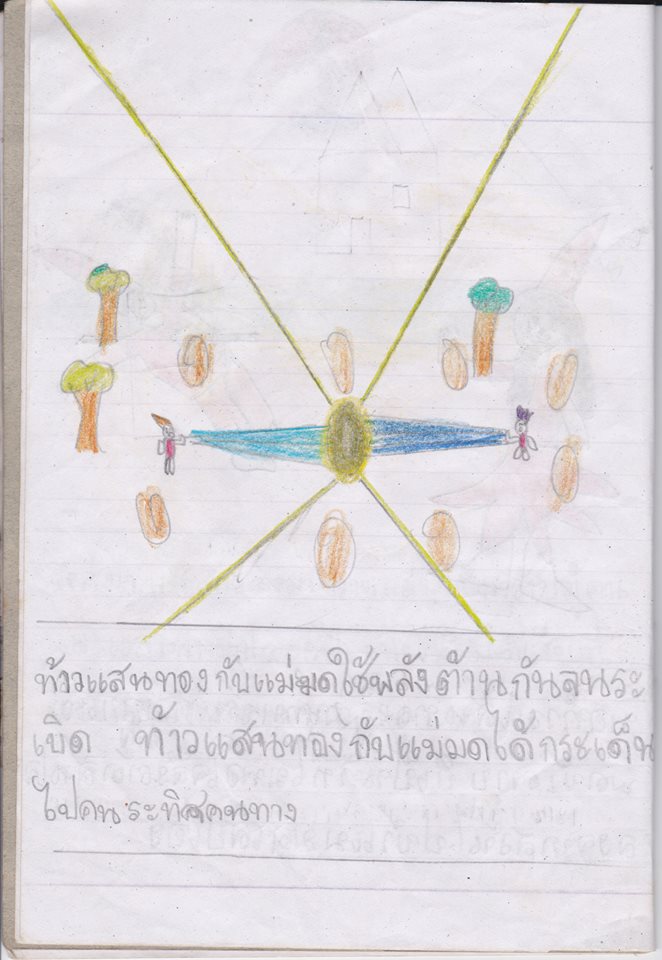 ท้าวแสนทองกับแม่มดใช้พลังต้านกันจนระ
เบิด ท้าวแสนทองกับแม่มดได้กระเด็น
ไปคนระทิศคนทาง